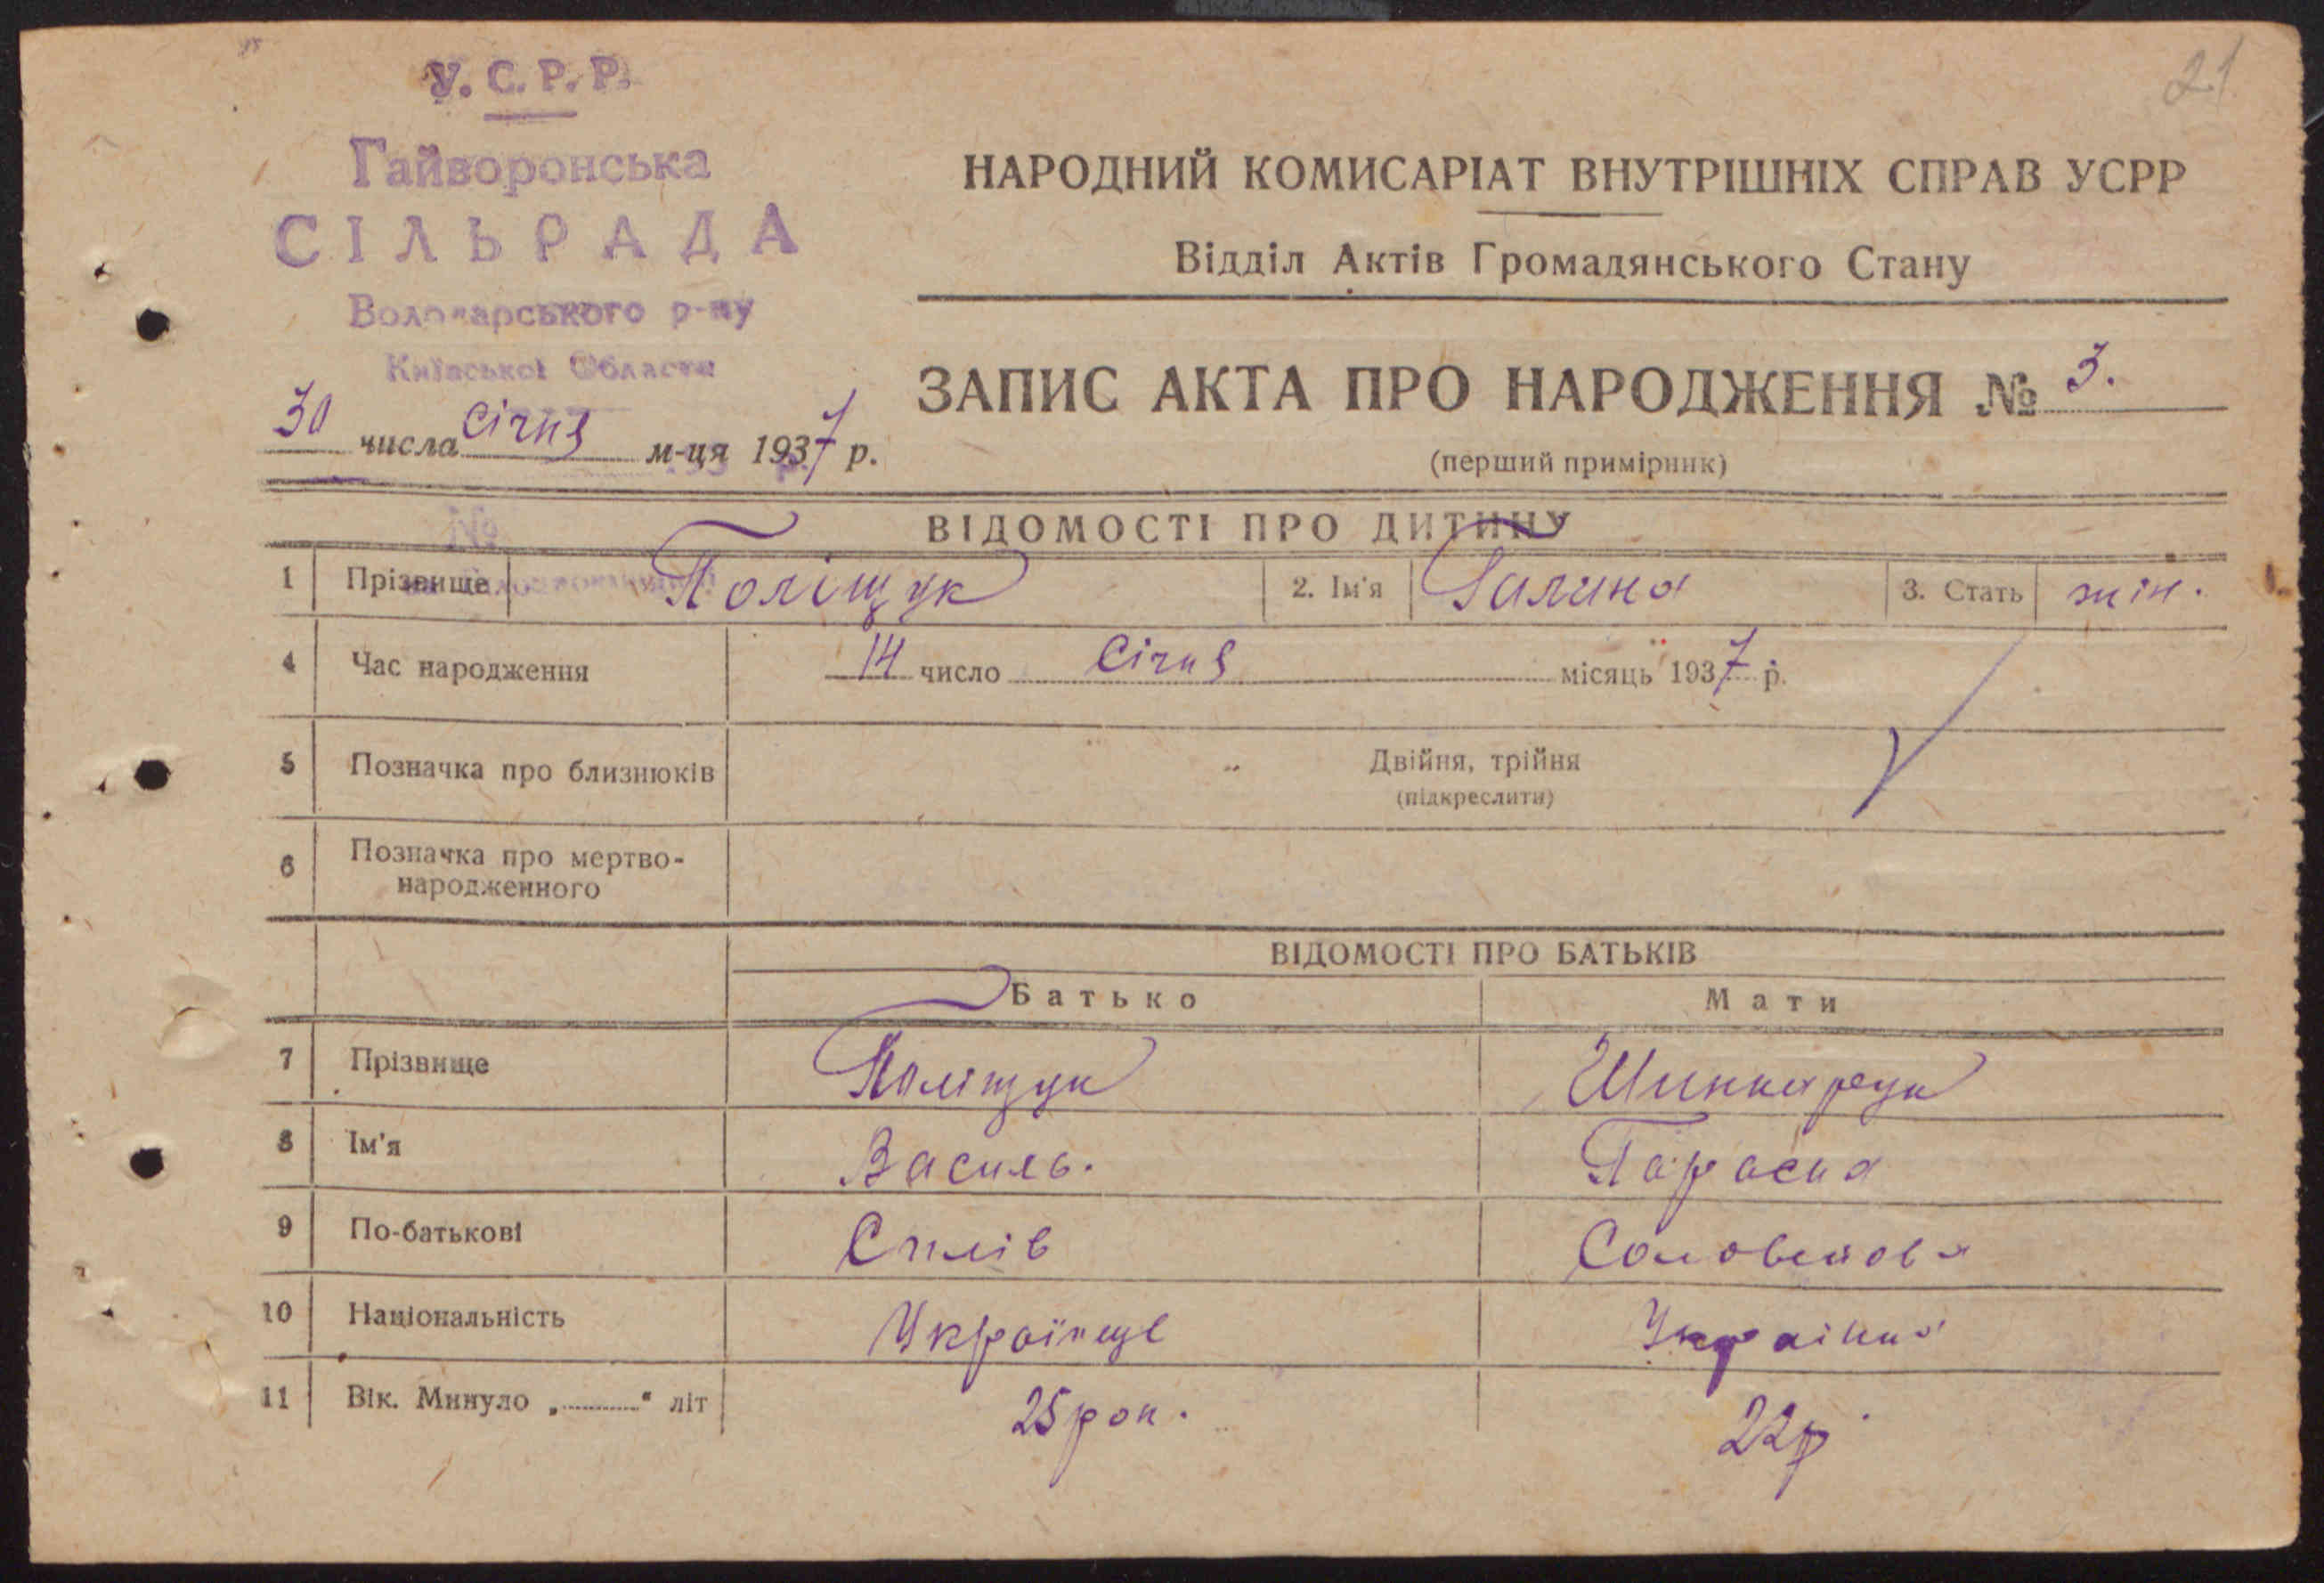 21
У.С.Р.Р.
Гайворонська
СІЛЬРАДА
Володарського р-ну
Київської Области
30 числа січня м-ця 1937 р.
НАРОДНИЙ КОМИСАРІАТ ВНУТРІШНІХ СПРАВ УСРР
Відділ Актів Громадянського Стану
ЗАПИС АКТА ПРО НАРОДЖЕННЯ № 3.
(перший примірник)
№
ВІДОМОСТІ ПРО ДИТИНУ
1 Прізвище Поліщук 2. Ім'я Галина 3. Стать жін.
4 Час народження 14 число Січня місяць 1937 р.
5 Позначка про близнюків Двійня, трійня
(підкреслити)
6 Позначка про мертво-
народженного
ВІДОМОСТІ ПРО БАТЬКІВ
Батько Мати
7 Прізвище Поліщук
8 Ім'я Василь. Параска
9 По-батькові
10 Національність Українець Українка
11 Вік. Минуло „ “ літ 25 рок. 22 р.